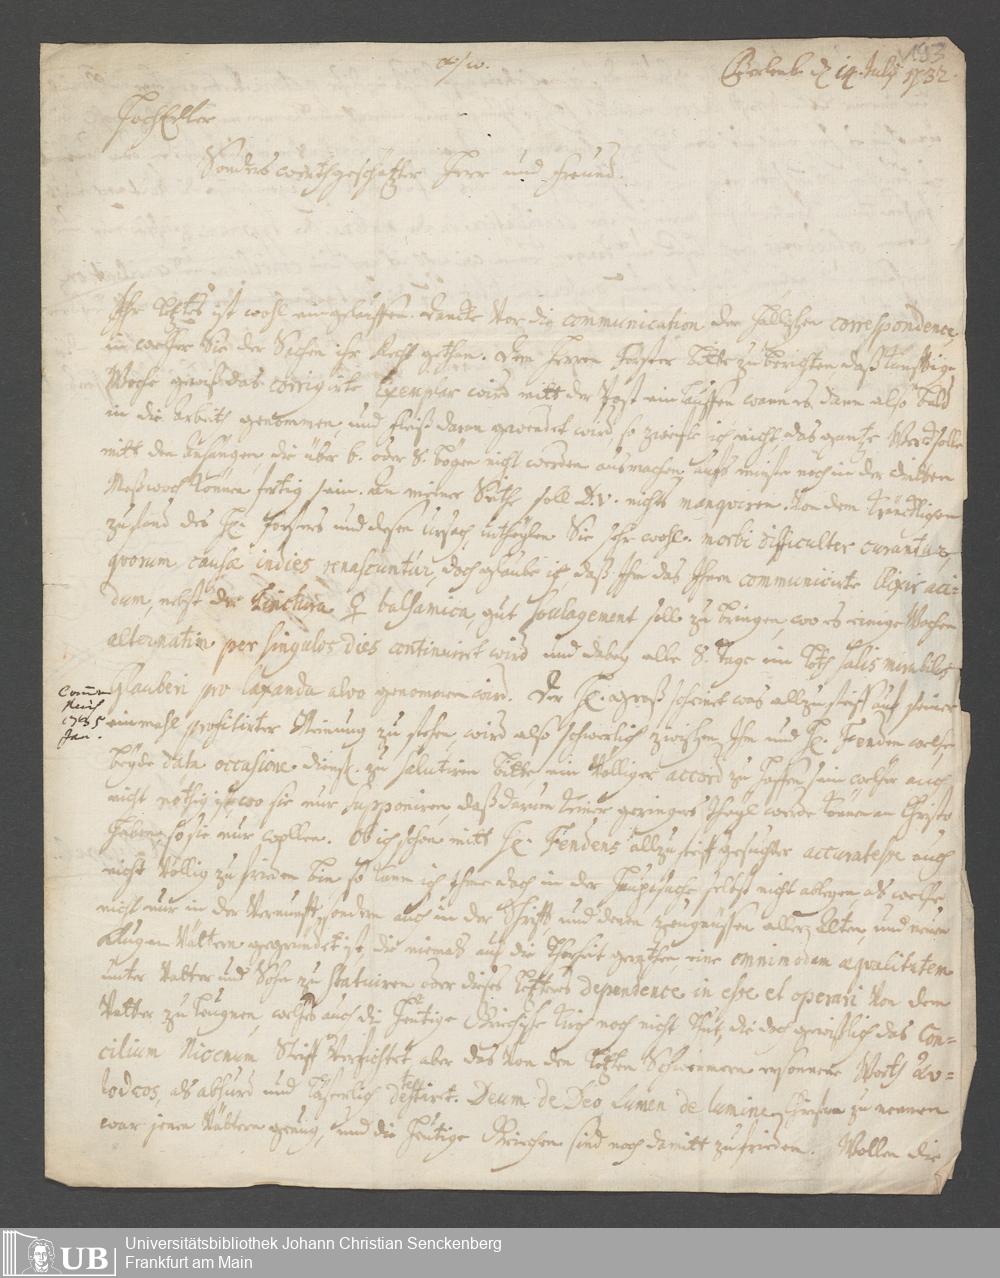 193
a/w.
Berleb. d. 14. July 1732.
HochEdler
Sonders werthgeschätzter Herr und Freund.
Ihr letztes ist wohl eingelauffen. Dancke vor die communication der Hällischen correspondence,
in welcher Sie der Sachen ihr Recht gethan. Dem Herren bitte zu berichten daß künfftige
Woche gewiß das corrigirte Exemplar wird mitt der Post einlauffen wann es dann also bald
in die Arbeit genommen, und fleiß daran gewendet wird, so zweifle ich nicht, das gantze Werck solle
mitt den Anhängen, die über 6. oder 8. bögen nicht werden ausmachen, auffs minste noch in der dritten
Meßwoch können fertig sein. An meiner Seithe soll D.V. nichts manquiren. Von dem kräncklichen
zustand des H. und dessen ursach urtheylen Sie sehr wohl. morbi difficulter curantur,
quorum causæ indies renascuntur, doch glaube ich, daß Ihm das Ihnen communicirte Elixir aci-
dum, nebst der Tinctura ♀ balsamica, gut soulagement soll zu bringen, wo es einige Wochen
alternatim per singulos dies continuiret wird und dabey alle 8. Tage ein Loth salis mirabilis
Glauberi pro laxanda alvo genommen wird. Der H. Groß scheinet was allzu steiff auf seiner
einmahl profitirter Meinung zu stehen, wird also schwerlich zwischen Ihm und H. Fenden welche
beyde data occasione dienstl. zu salutiren bitte, ein völliger accord zu hoffen sein, welcher auch
nicht nöthig ist, wo sie nur supponiren, daß darum keiner geringers theyl werde können an Christo
haben, so sie nur wollen. Ob ich schon mitt H. Fendens allzu steiff gesuchter accuratesse auch
nicht völlig zu frieden bin so kann ich Ihme doch in der Hauptsache selbst nicht ablegen, als welche
nicht nur in der Vernunfft, sondern auch in der Schrifft, und denen zeugnüssen aller Alten, und neuen
klugen Vättern gegründet ist, die niemals auf die Thorheit gerathen, eine omnimodam æqualitatem
unter Vatter und Sohn zu statuiren oder dieses letztres dependence in esse et operari von dem
Vatter zu läugnen, welches auch die heutige Griechische Kirch noch nicht thut, die doch gewißlich das Con-
cilium Nicenum Steiff verfichtet, aber das von den letzten Schwermern ersonnene Worth Αυ-
τοθεος, als absurd und lästerlich detestiret. Deum de Deo Lumen de lumine, Christum zu nennen
war jenen Vättern genug, und die heutige Griechen sind noch damitt zufrieden. Wollen die
1735
Jan.
UB
Universitätsbibliothek Johann Christian Senckenberg
Frankfurt am Main